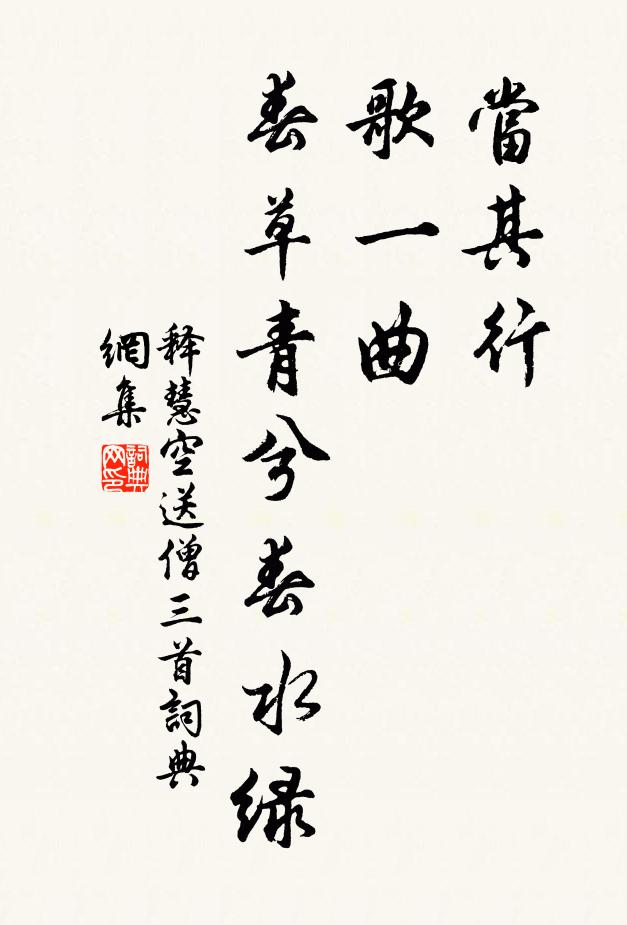 當其行
歌一曲
春草青兮春水緑
释慧空送僧三首詞典
網集
詞典网印